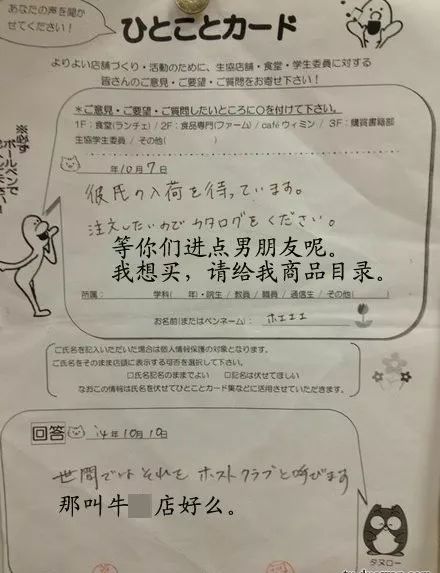 あなたの声を聞か
せてください！
ひとことカード
よりよい店舗づくり・活動のために、生協店舗・食堂・学生委員に対する
皆さんのご意見・ご要望・ご質問をお寄せ下さい！
※必ずボールペンで
＊ご意見・ご要望・ご質問したいところに○を付けて下さい。
1F：食堂(ランチェ) / 2F：食品専門(ファーム) / café ウィミン / 3F：購買書籍部
生協学生委員 / その他( )
年10月7日
彼氏の入荷を待っています。
注文したいのでカタログをください。
等你们进点男朋友呢。
我想买，请给我商品目录。
所属： 学科( 年)・院生 / 教員 / 職員 / 通信生 / その他( )
お名前(またはペンネーム)： ホエエエ
ご氏名を記入いただいた場合は個人情報保護の対象となります。
ご氏名をそのまま店頭に表示する可否を選択して下さい。
□氏名記名のままでよい □記名は伏せてほしい
なおこの情報は氏名を伏せてひとことカード集などに活用させていただきます。
回答 14年10月10日
世間ではそれをホストクラブと呼びます
那叫牛 店好么。
タヌロー